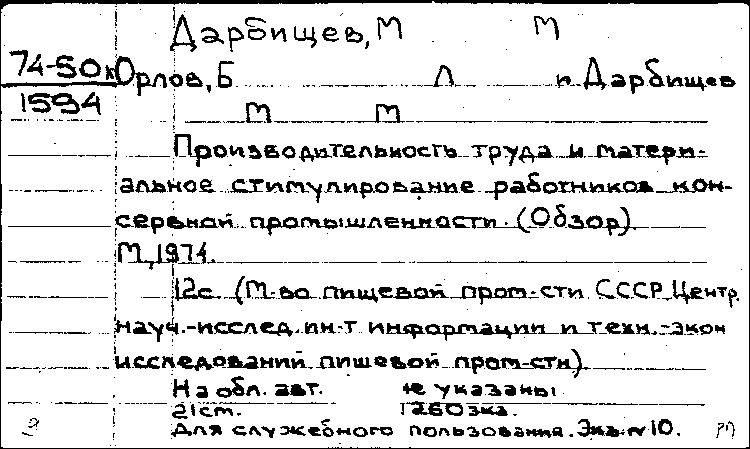 Дарбищев, М М
74-50к Орлов, Б Л и Дарбищев
1594 М М
Производительность труда и матери-
альное стимулирование работников кон-
сервной промышленности. (Обзор).
М., 1974.
12с. (М-во пищевой пром-сти СССР. Центр.
науч.-исслед. ин-т информации и техн.-экон
исследований пищевой пром-сти)
На обл. авт. не указаны
21см. 1260экз.
Для служебного пользования. Экз. №10.